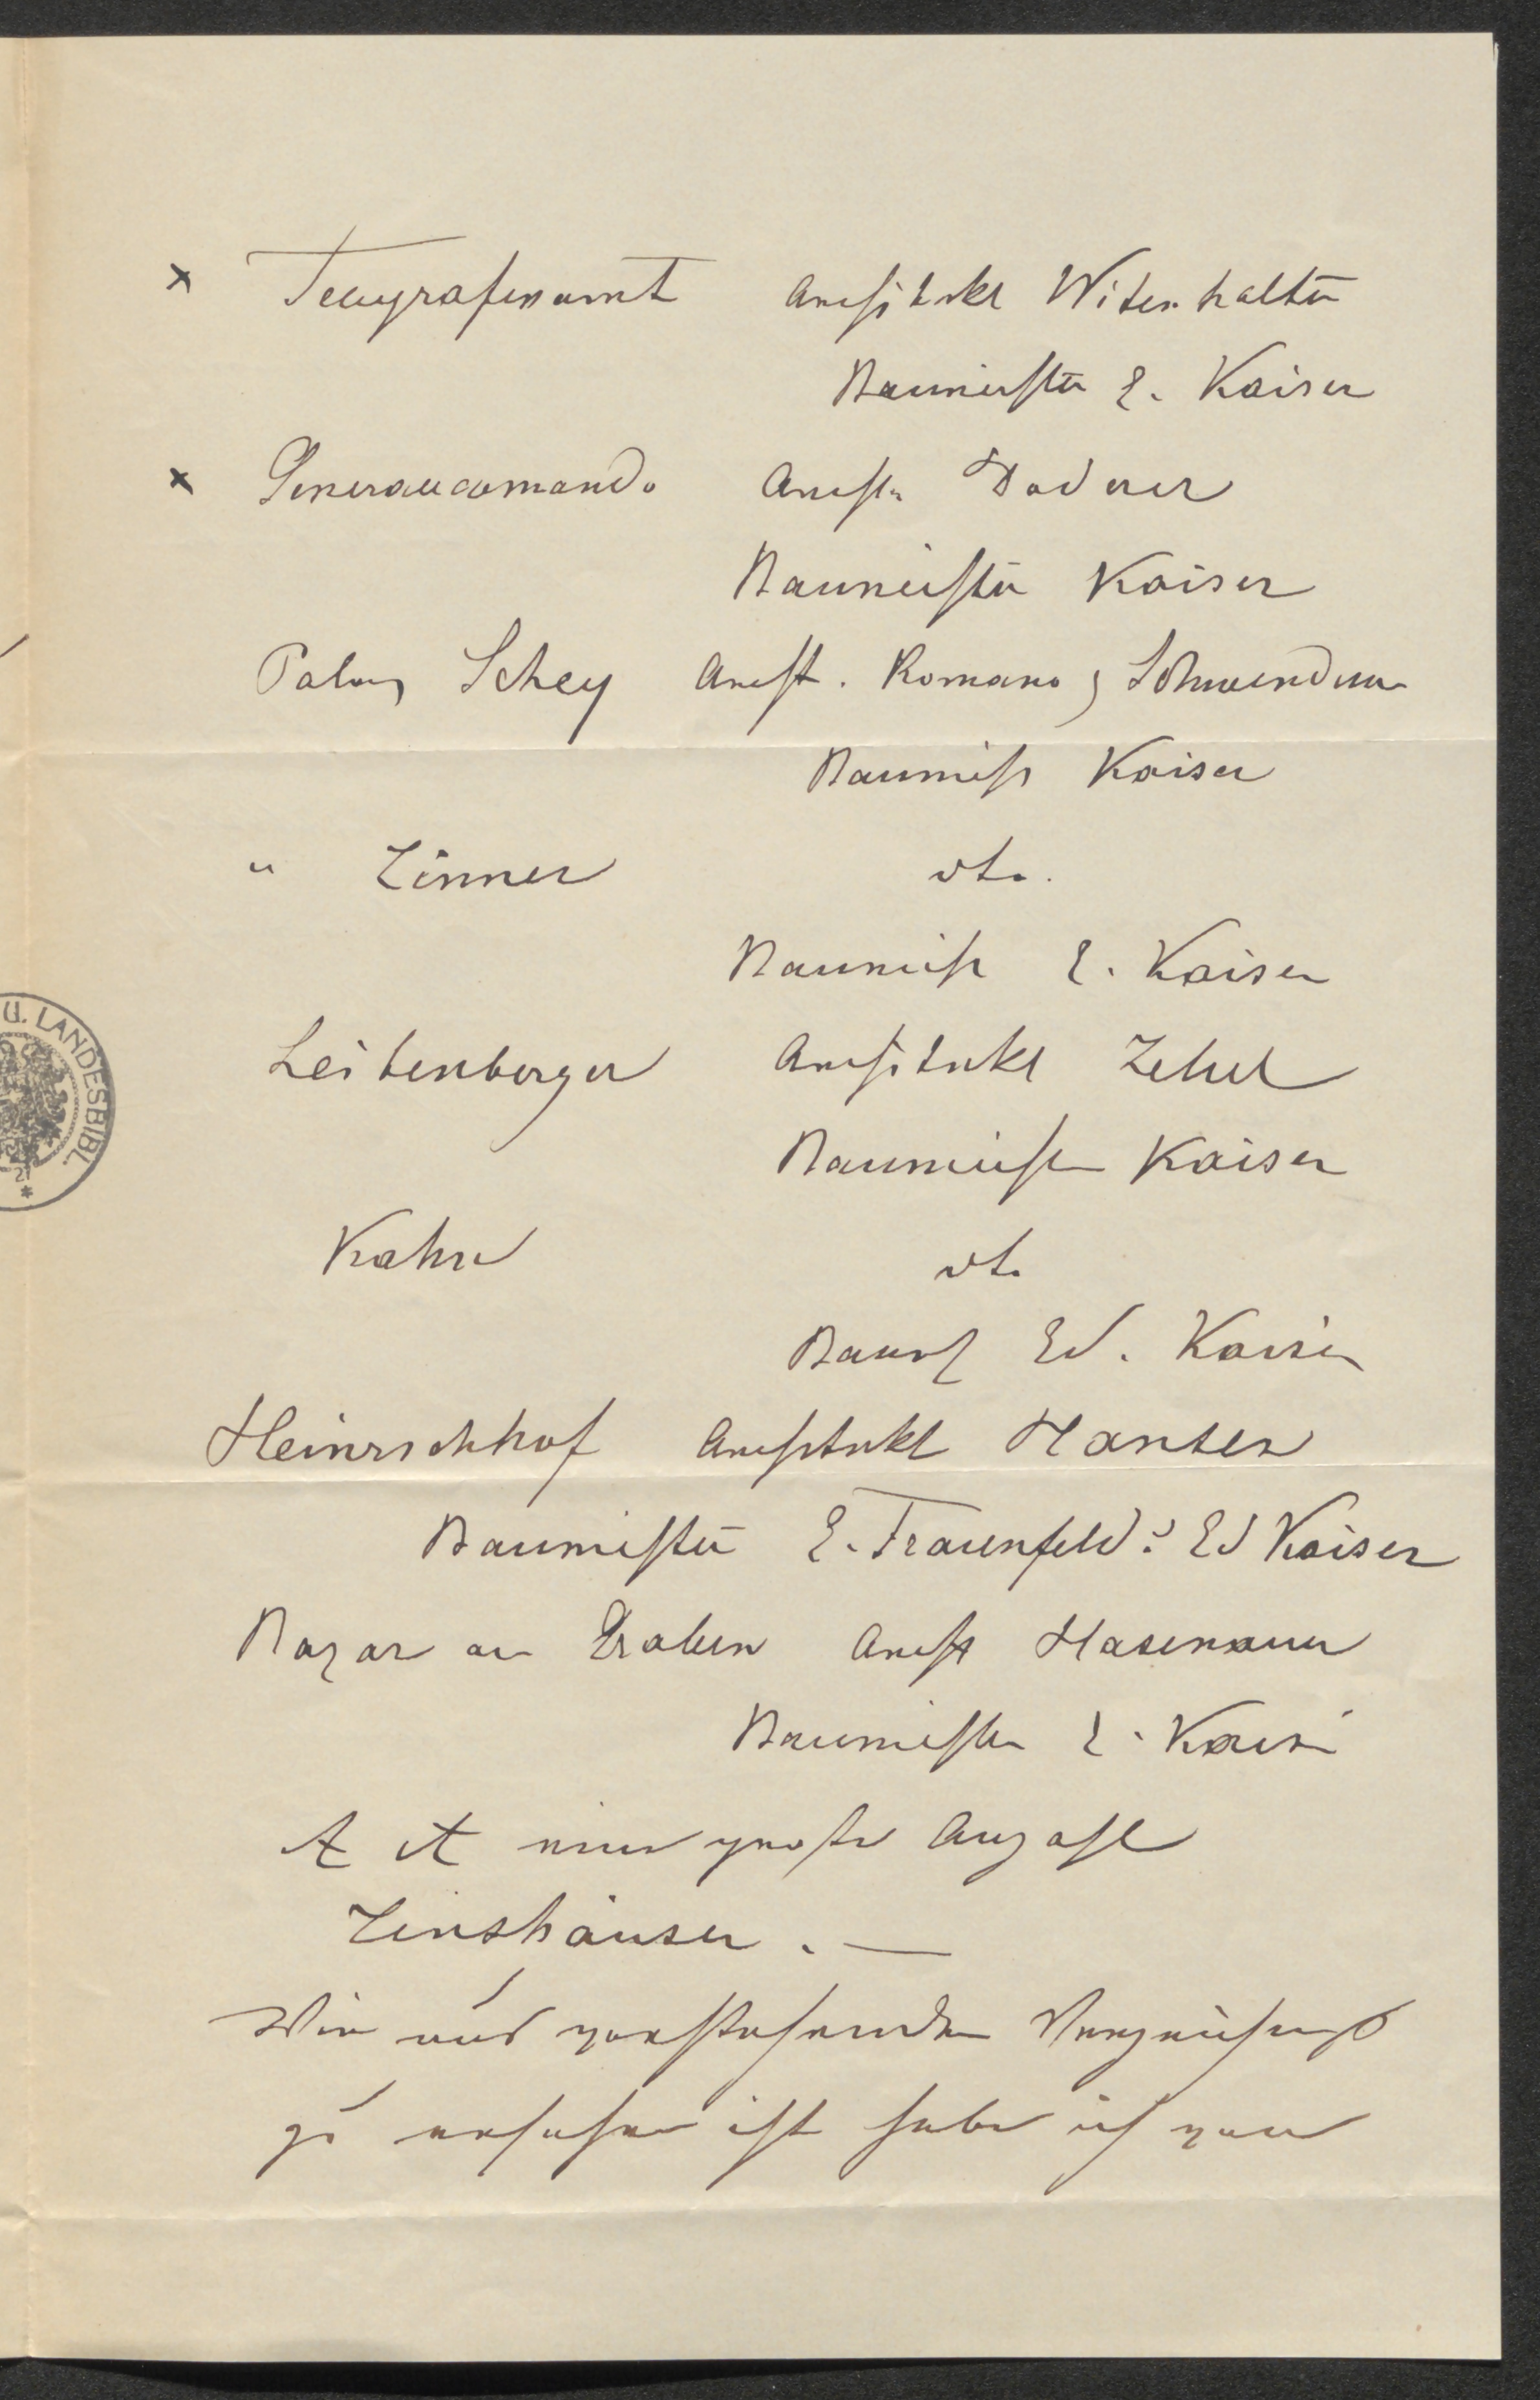 x Telegrafenamt Architekt Witenhalter
Baumeister E. Kaiser
x Generalcomando Archt. Doderer
Baumeister Kaiser
Palais Schey Archt. Romano & Schwendenw
Baumeist Kaiser
" Zinner dto.
Baumeist E. Kaiser
Leitenberger Architekt Zettel
Baumeister Kaiser
Kahn dto
Baumst Ed. Kaiser
Heinrichhof Architekt Hansen
Baumeister E. Frauenfeld & Ed Kaiser
Bazar am Graben Archt Hasenauer
Baumeister E. Kaiser
& & eine große Anzahl
Zinshäuser. —
Wie aus vorstehenden Verzeichniß
zu ersehen ist habe ich von
U. LANDESBIBL.